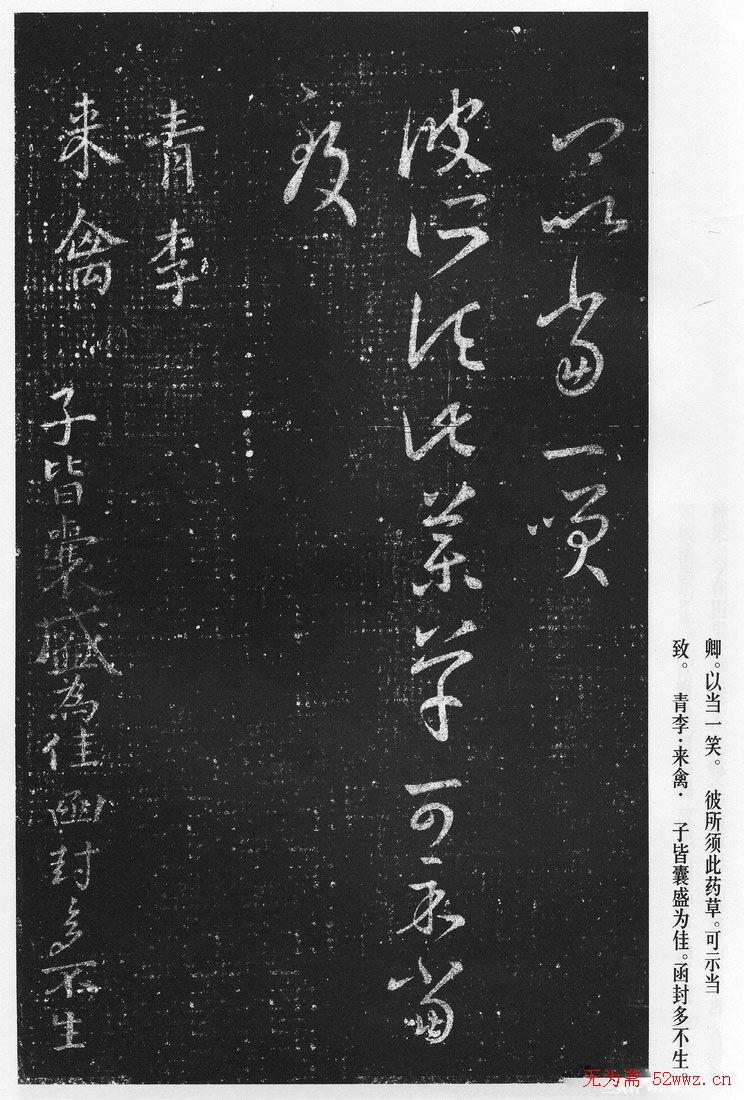 卿。以当一笑。 彼所须此药草。可示当
致。 青李·来禽· 子皆囊盛为佳。函封多不生
卿以當一笑
彼所須此藥草可示當
致
青李
来禽 子皆囊盛為佳函封多不生
无为斋 52wwz.cn